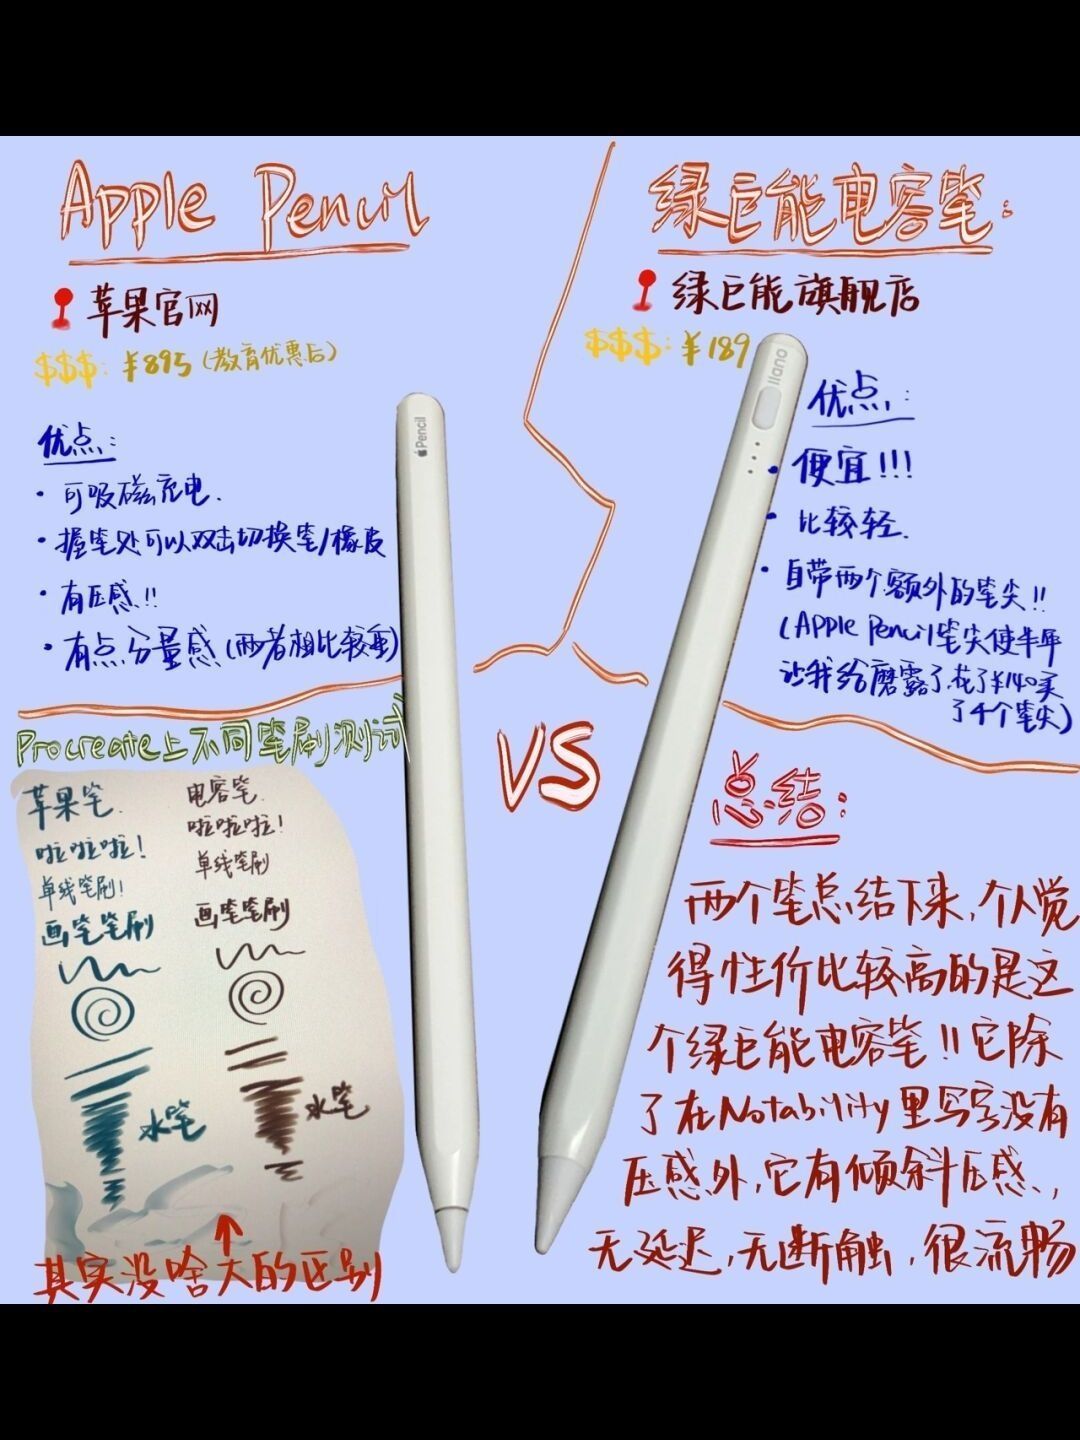 Apple Pencil
苹果官网
$$$:¥895(教育优惠后)
优点:
·可吸磁充电.
·握笔处可以双击切换笔/橡皮
·有压感!!
·有点分量感(两者相比较重)
Pencil
绿巨能电容笔:
绿巨能旗舰店
$$$:¥189
llano
优点:
·便宜!!!
·比较轻.
·自带两个额外的笔尖!!
(Apple Pencil笔尖使半年
让我给磨露了,花了¥140买
了4个笔尖)
VS
Procreate上不同笔刷测试
苹果笔.
啦啦啦!
单线笔刷!
画笔笔刷
水笔
电容笔.
啦啦啦!
单线笔刷
画笔笔刷
水笔
其实没啥大的区别
总结:
两个笔总结下来,个人觉
得性价比较高的是这
个绿巨能电容笔!!它除
了在Notability里写字没有
压感外,它有倾斜压感,
无延迟,无断触,很流畅